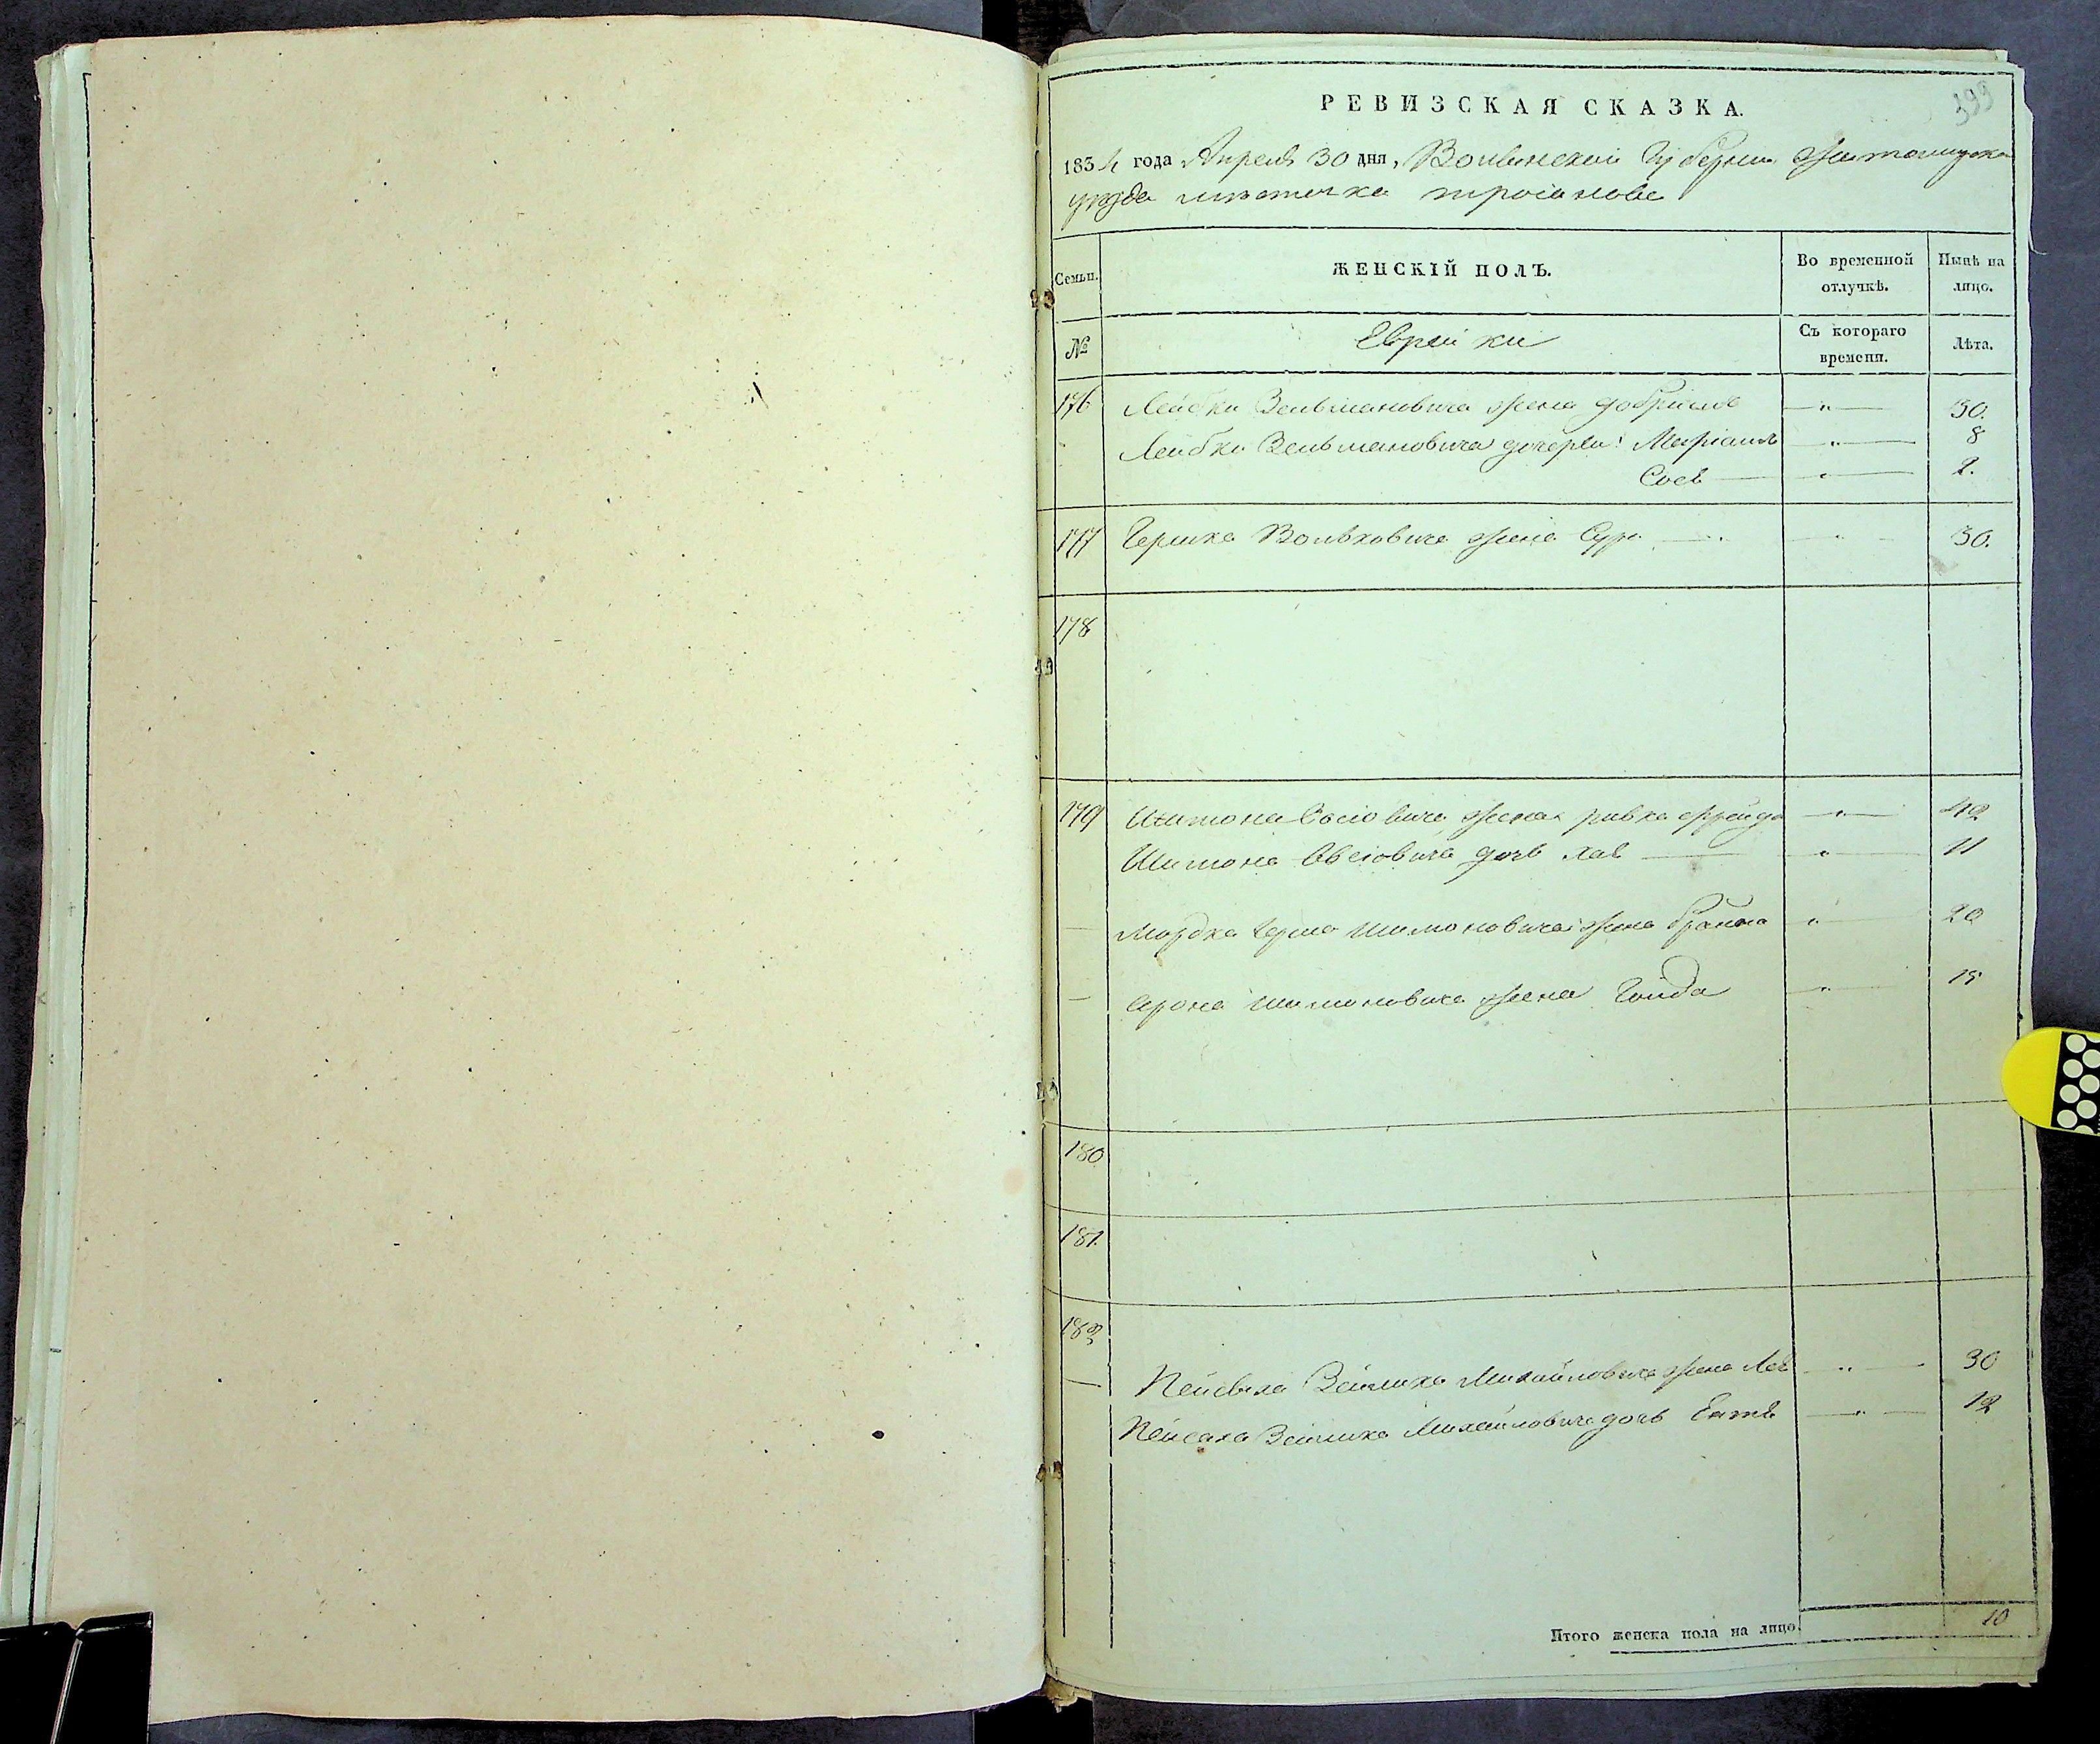 399
РЕВИЗСКАЯ СКАЗКА.
1834 года Апреля 30 дня, Волынской Губернии Житомирскаго
уезда местечка троianова
Семьи. ЖЕНСКІЙ ПОЛЪ. Во временной отлучкѣ. Нынѣ на лицо.
№ Еврейки Съ котораго времени. Лѣта.
176 Лейбки Зельмановича жена добриш 30.
Лейбки Зельмановича дочери: Маріаш 8
Сося 2.
177 Гершка Волвковича жена Сура 30.
178
179 Шимона Овсіовича жена ривка фрейда 42
Шимона Овсіовича дочь хая 11
Мордка Герша Шимоновича жена брайна 20
Арона Шимоновича жена Гольда 15
180
181.
182
Пейсаха Зейлика Михайловича жена Лея 30
Пейсаха Зейлика Михайловича дочь Ентя 12
Итого женска пола на лицо. 10